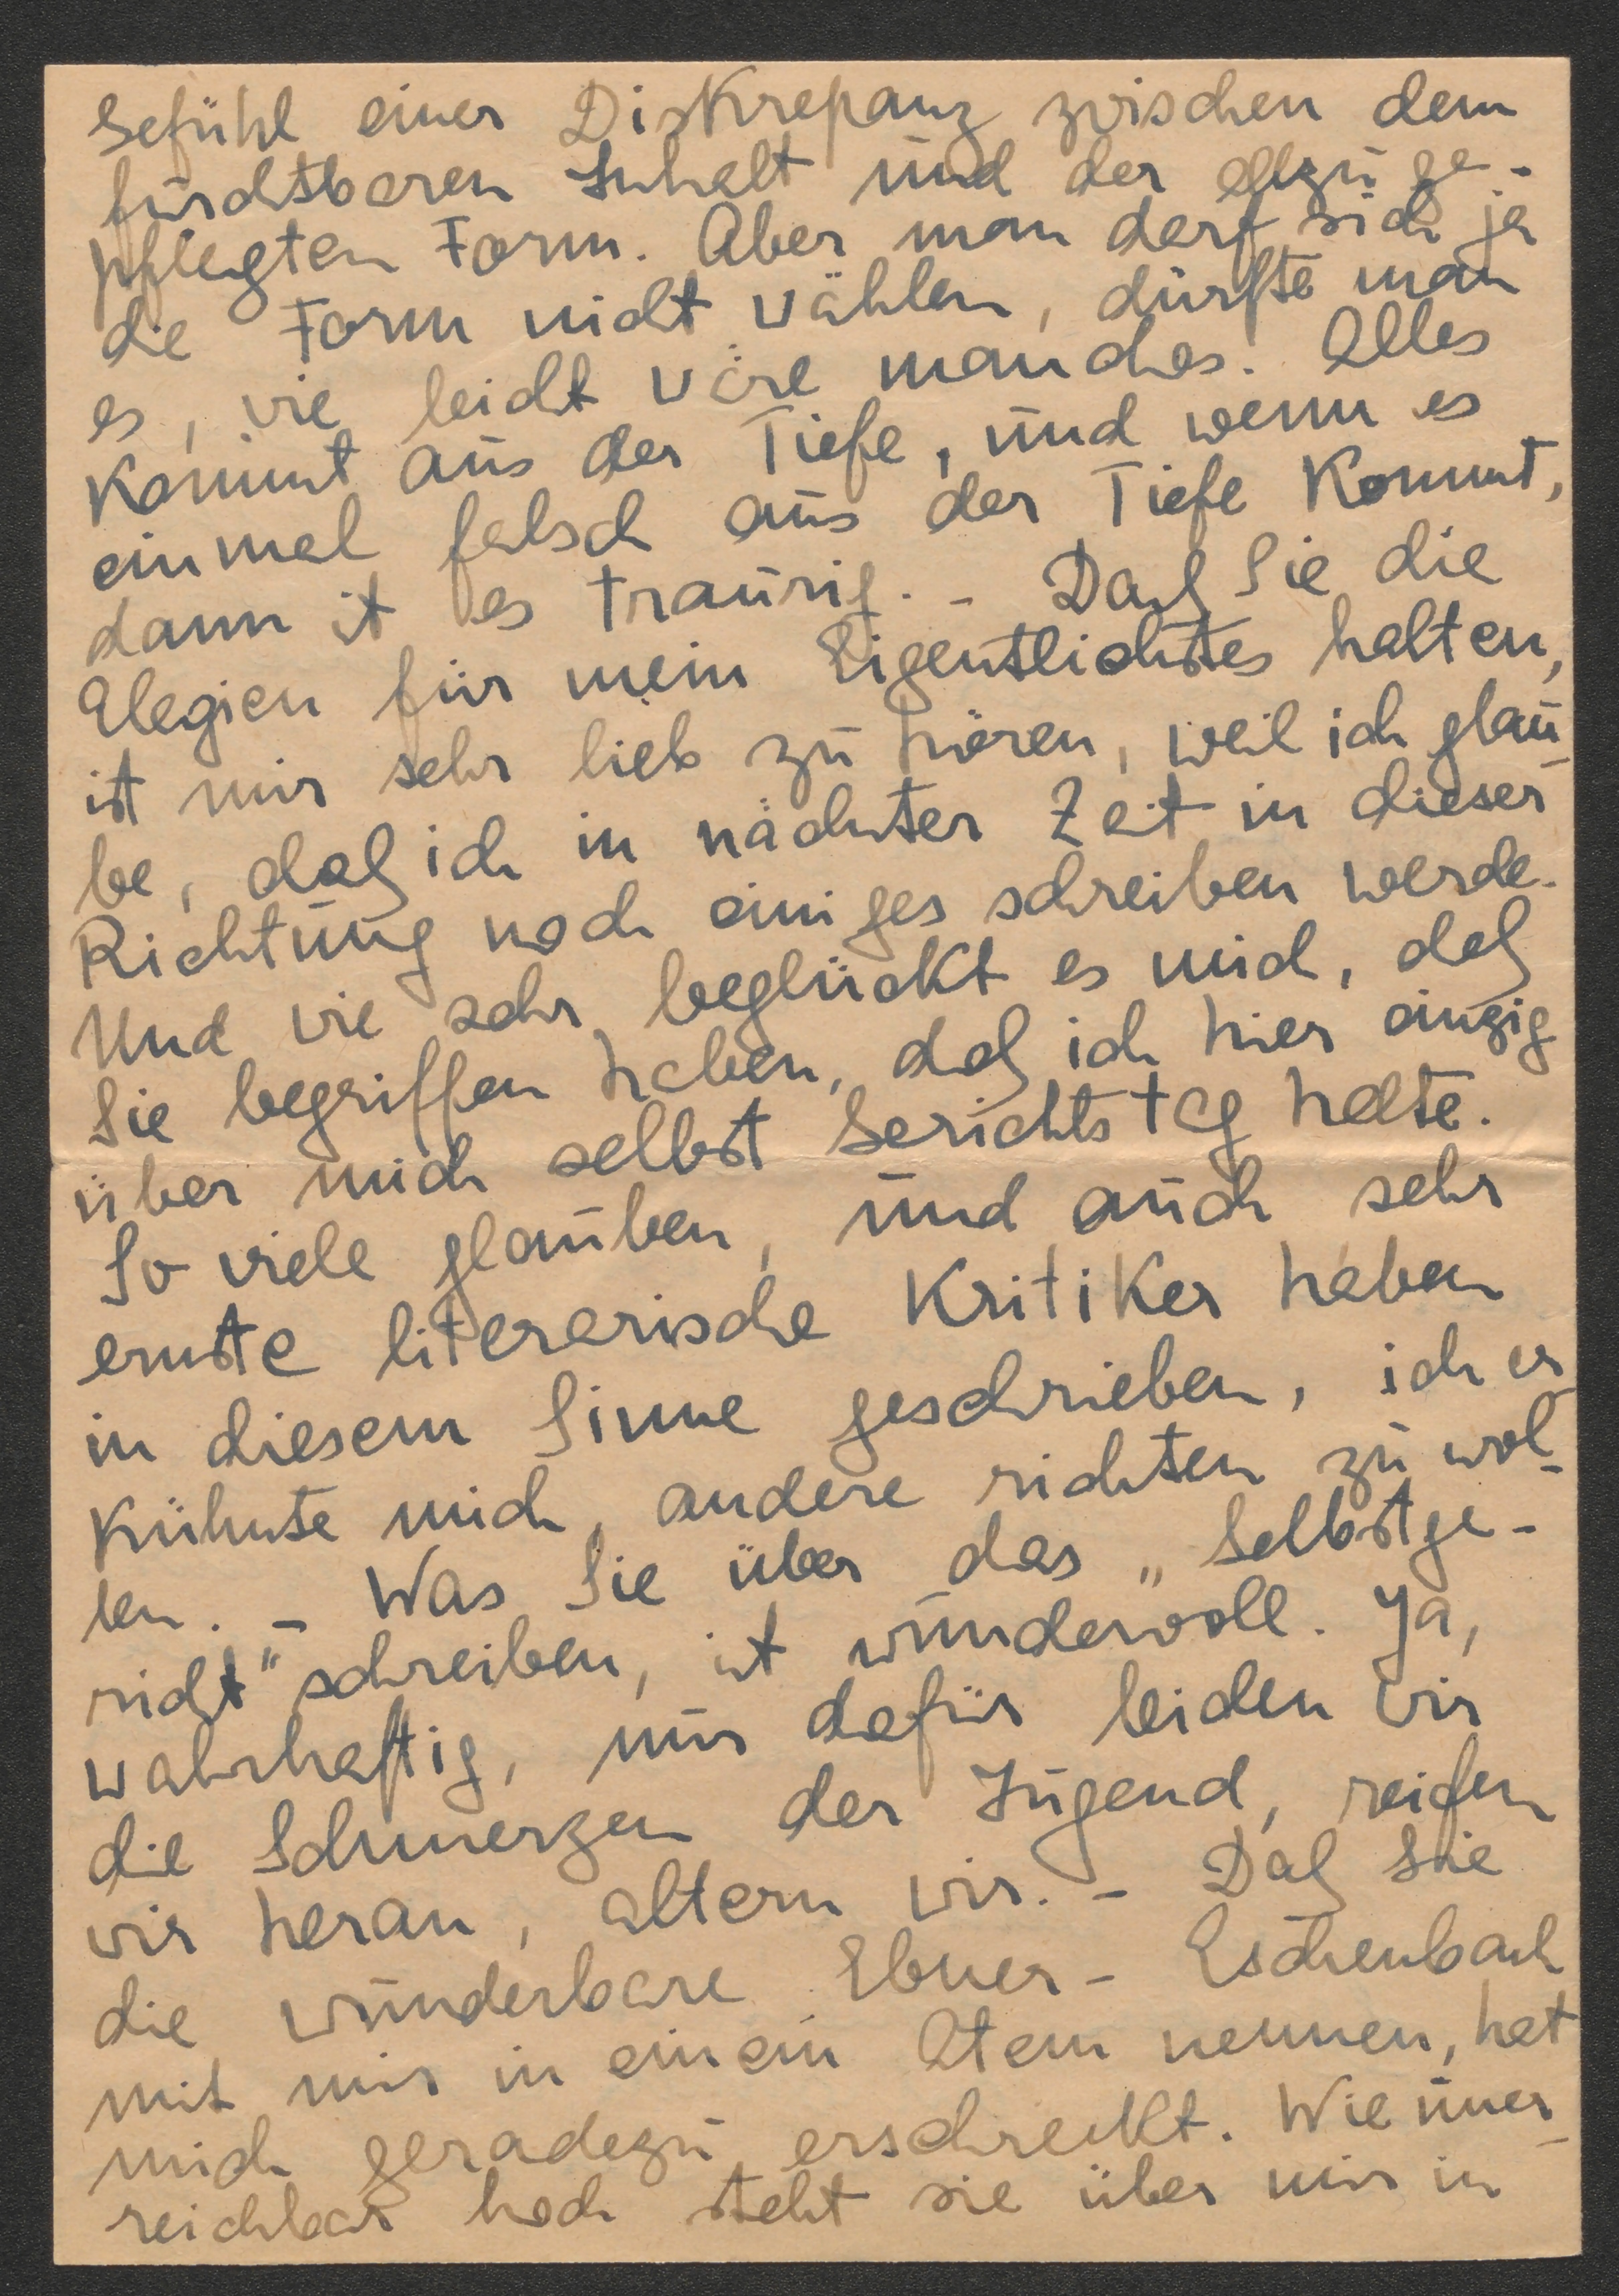 Gefühl einer Diskrepanz zwischen dem
furchtbaren Inhalt und der allzu ge-
pflegten Form. Aber man darf sich ja
die Form nicht wählen, dürfte man
es, wie leicht wäre manches. Alles
kommt aus der Tiefe, und wenn es
einmal falsch aus der Tiefe kommt,
dann ist es traurig. – Daß Sie die
Elegien für mein Eigentlichstes halten,
ist mir sehr lieb zu hören, weil ich glau-
be, daß ich in nächster Zeit in dieser
Richtung noch einiges schreiben werde.
Und wie sehr beglückt es mich, daß
Sie begriffen haben, daß ich hier einzig
über mich selbst Gerichtstag halte.
So viele glauben, und auch sehr
ernste literarische Kritiker haben
in diesem Sinne geschrieben, ich er-
kühnte mich, andere richten zu wol-
len. – Was Sie über das „Selbstge-
richt" schreiben, ist wundervoll. Ja,
wahrhaftig, nur dafür leiden wir
die Schmerzen der Jugend, reifen
wir heran, altern wir. – Daß Sie
die wunderbare Ebner-Eschenbach
mit mir in einem Atem nennen, hat
mich geradezu erschreckt. Wie uner-
reichbar hoch steht sie über mir in